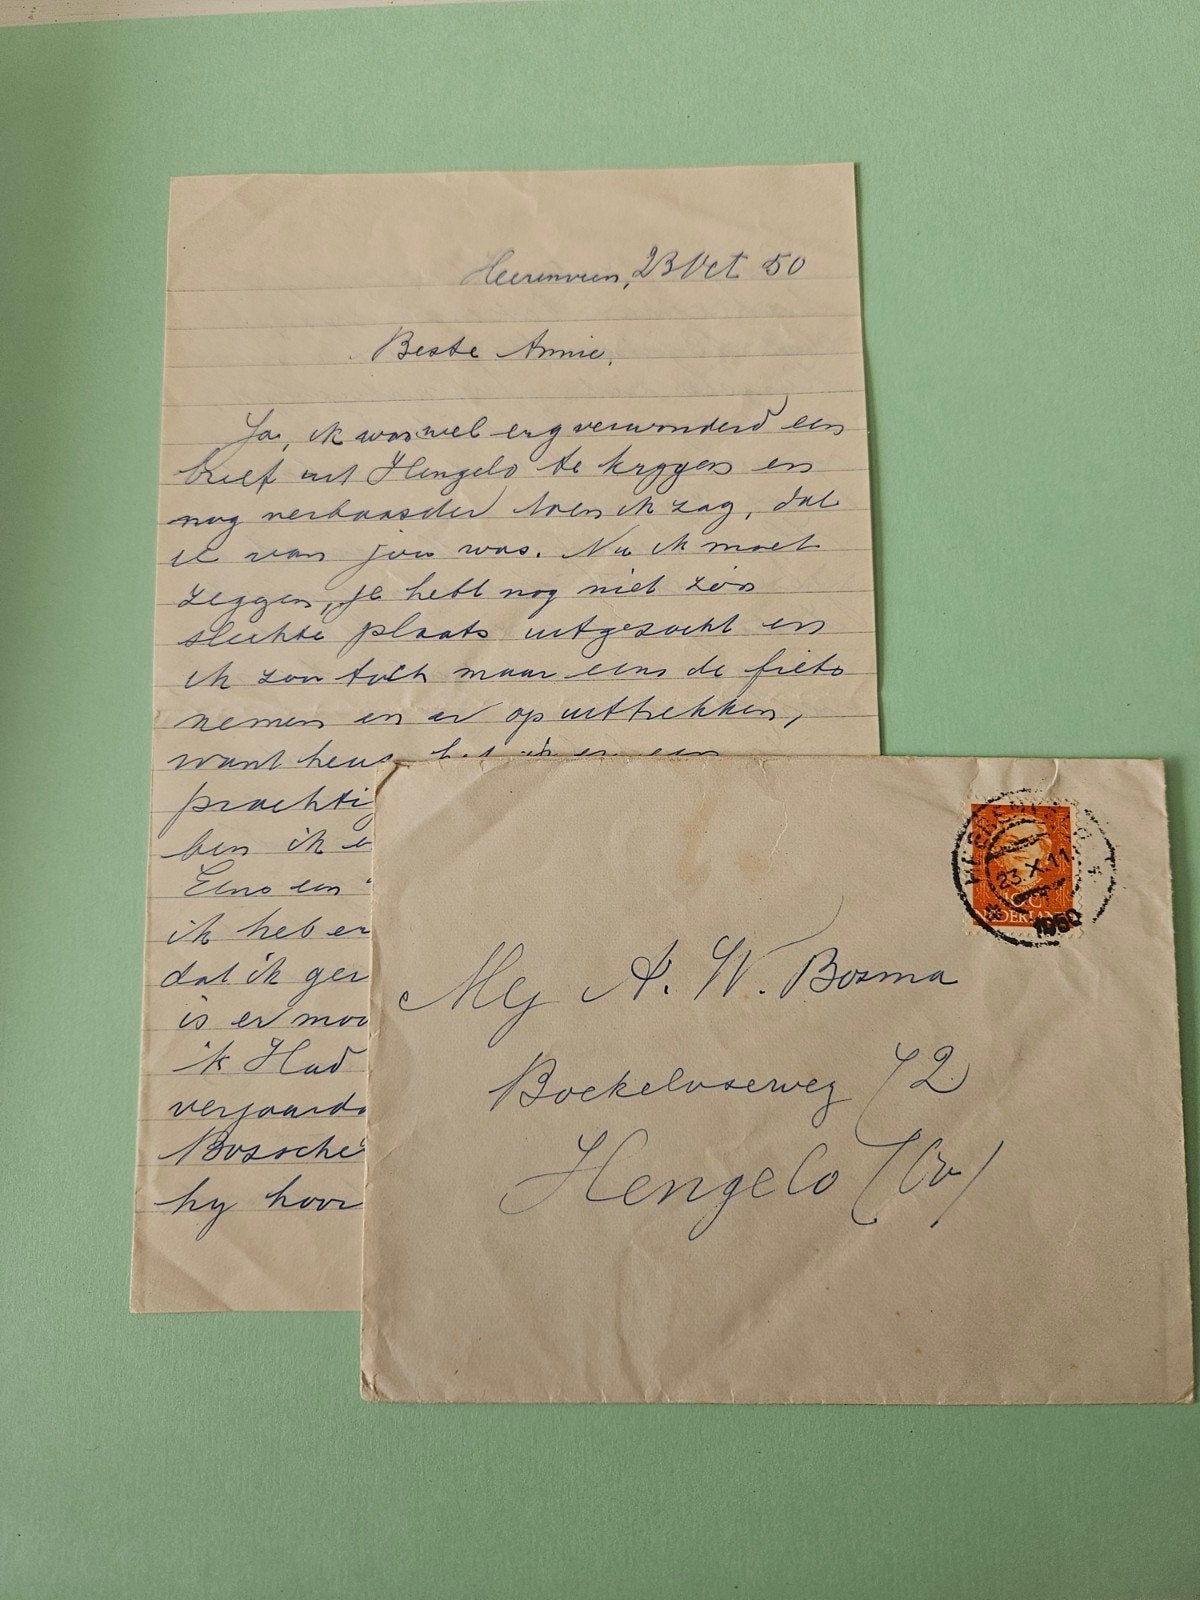 Heerenveen, 23 Oct 50
Beste Annie,
Ja, ik was wel erg verwonderd een
brief uit Hengelo te krygen en
nog verbaasder toen ik zag, dat
ie van jou was. Nu ik moet
zeggen, je hebt nog niet zo'n
slechte plaats uitgezocht en
ik zou toch maar eens de fiets
nemen en er op uittrekken,
want heus
prachti
ben ik e
Eens een
ik heb er
dat ik ger
is er moo
ik Had
verjaarda
Bossche
hy hoor
23.X.11
1950
NEDERLAND
Mej A. W. Bosma
Boekeloseweg 72
Hengelo (Ov)